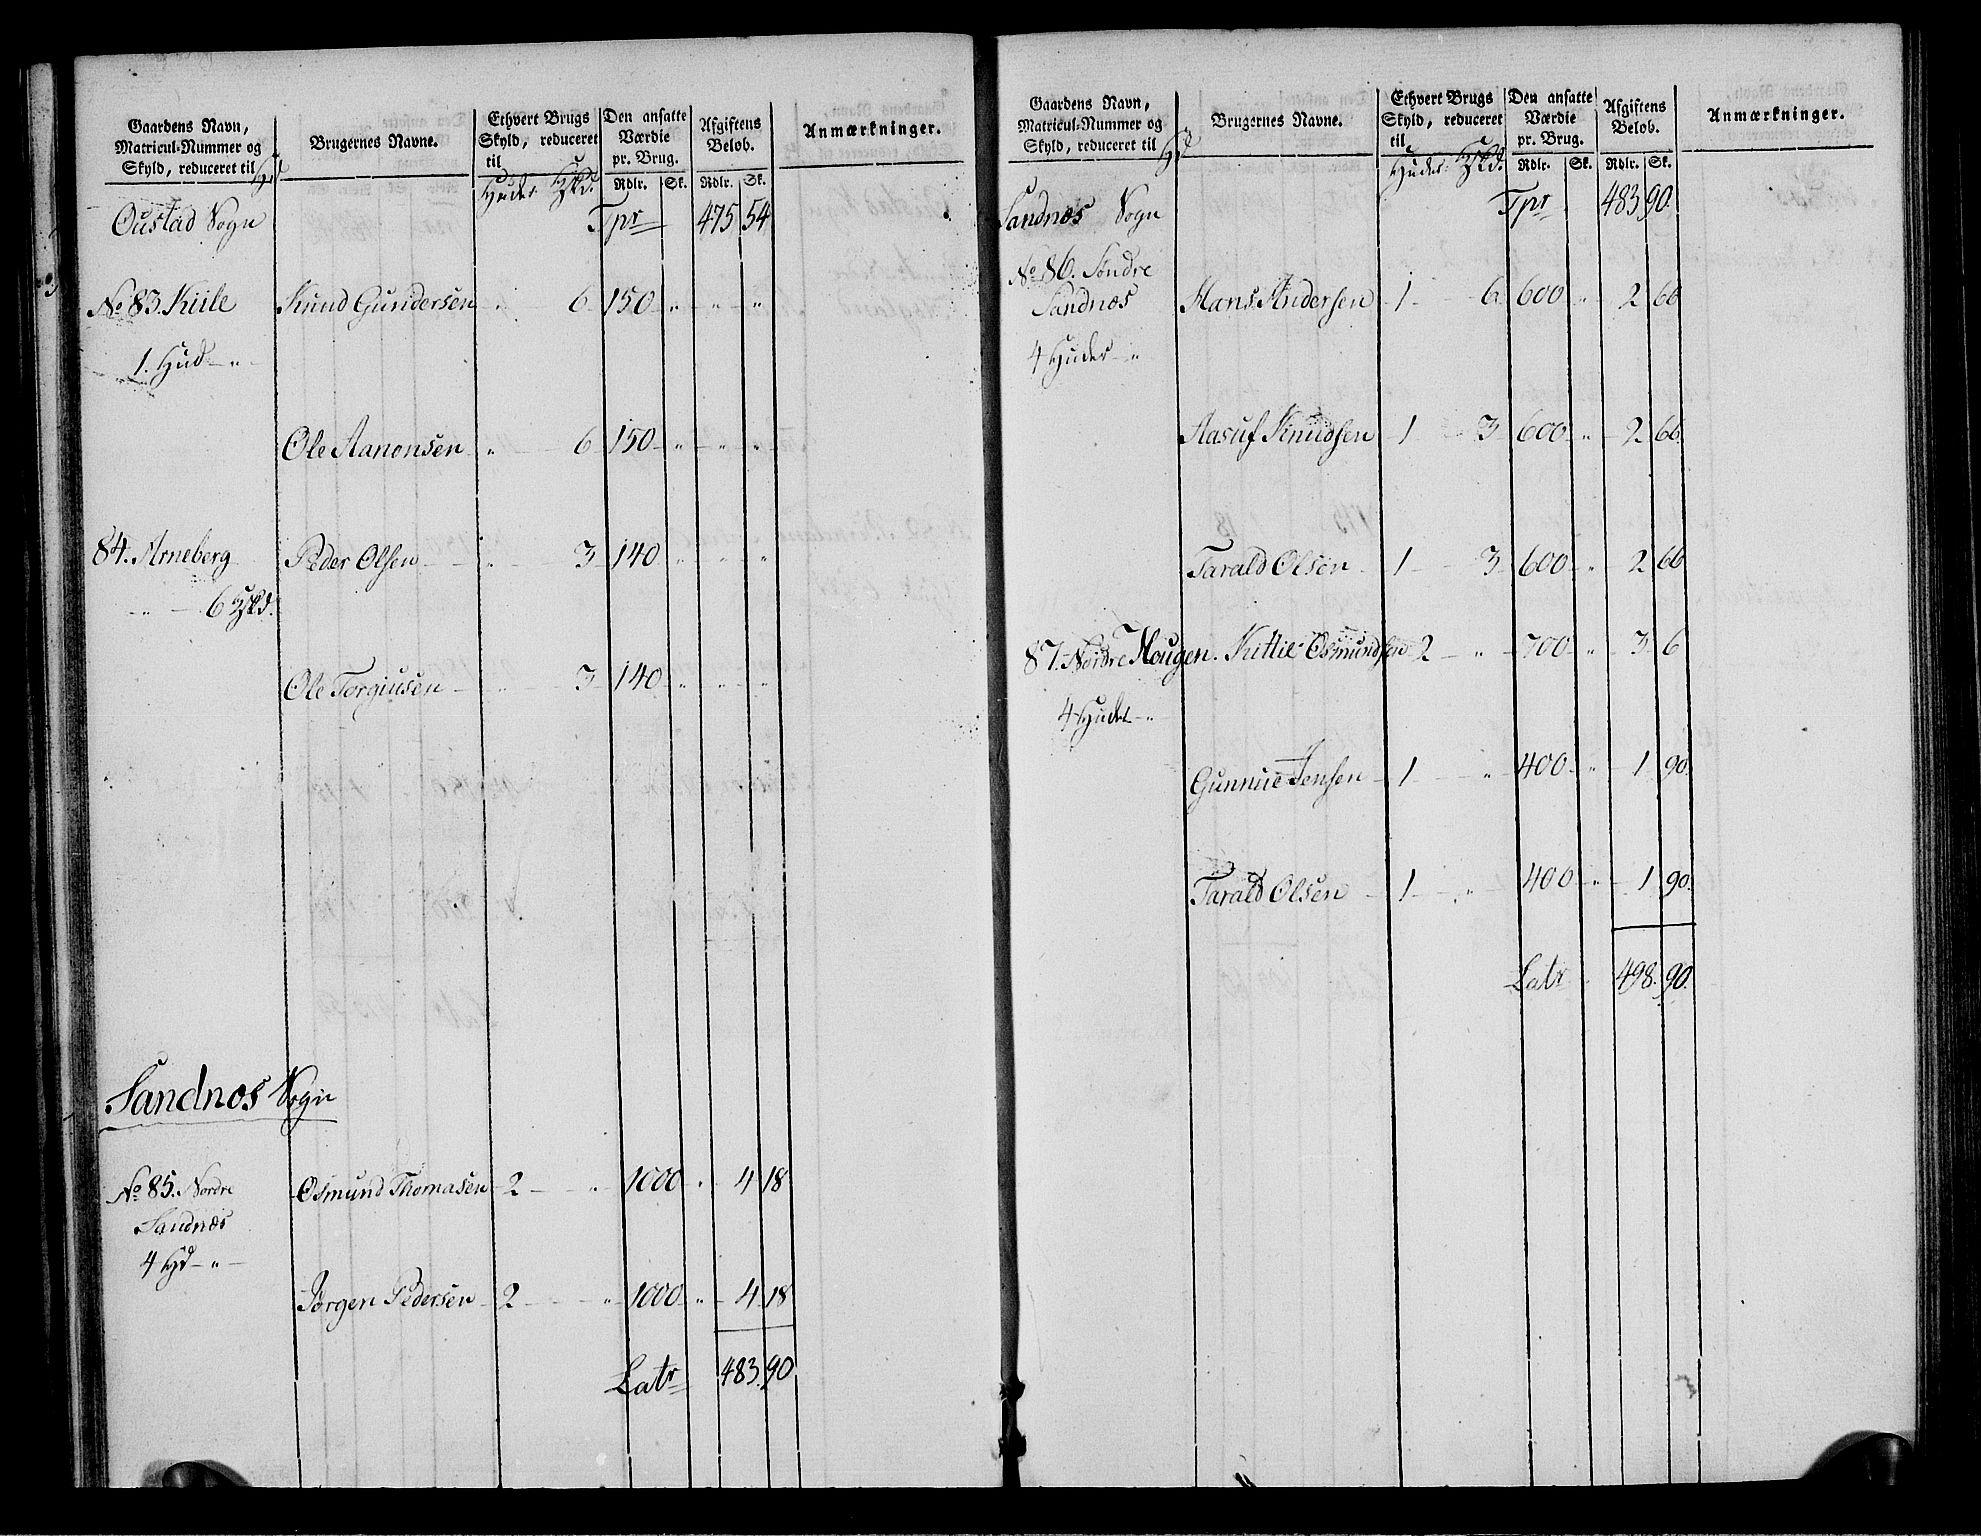 Gaardens Navn, Matricul-Nummer og Skyld, reduceret til Hd | Brugernes Navne. | Ethvert Brugs Skyld, reduceret til Huder Zkd. | Den ansatte Værdie pr. Brug. Rdlr. Sk. | Afgiftens Beløb. Rdlr. Sk. | Anmærkninger.
Oustad Sogn Tpr 475 54
No 83. Kiile Knud Gundersen „ 6 150 „ „ „
1. Hud „
Ole Aanonsen „ 6 150 „ „ „
84. Arneberg Peder Olsen „ 3 140 „ „ „
„ 6 Zkd.
Ole Torgiusen „ 3 140 „ „ „
Sandnæs Sogn
No 85. Nordre Osmund Thomasen 2 „ 1000 „ 4 18
Sandnæs
4 Hd „
Jørgen Pedersen 2 „ 1000 „ 4 18
Latr 483 90
Gaardens Navn, Matricul-Nummer og Skyld, reduceret til Hd | Brugernes Navne. | Ethvert Brugs Skyld, reduceret til Huder Zkd. | Den ansatte Værdie pr. Brug. Rdlr. Sk. | Afgiftens Beløb. Rdlr. Sk. | Anmærkninger.
Sandnæs Sogn Tpr 483 90.
No 86. Søndre
Sandnæs Hans Andersen 1 6 600 „ 2 66
4 Huder „
Aasuf Knudsen 1 3 600 „ 2 66
Tarald Olsen 1 3 600 „ 2 66
87. Nordre Hougen. Kittil Osmundsen 2 „ 700 „ 3 6
4 Huder „
Gunnue Jensen 1 „ 400 „ 1 90.
Tarald Olsen 1 „ 400 „ 1 90.
Latr 498. 90.